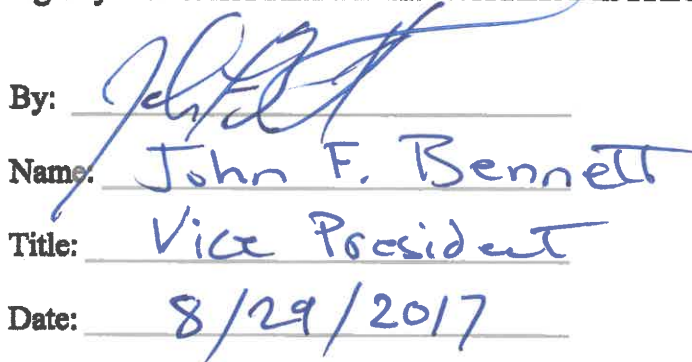 By:
Name: John F. Bennett
Title: Vice President
Date: 8/29/2017